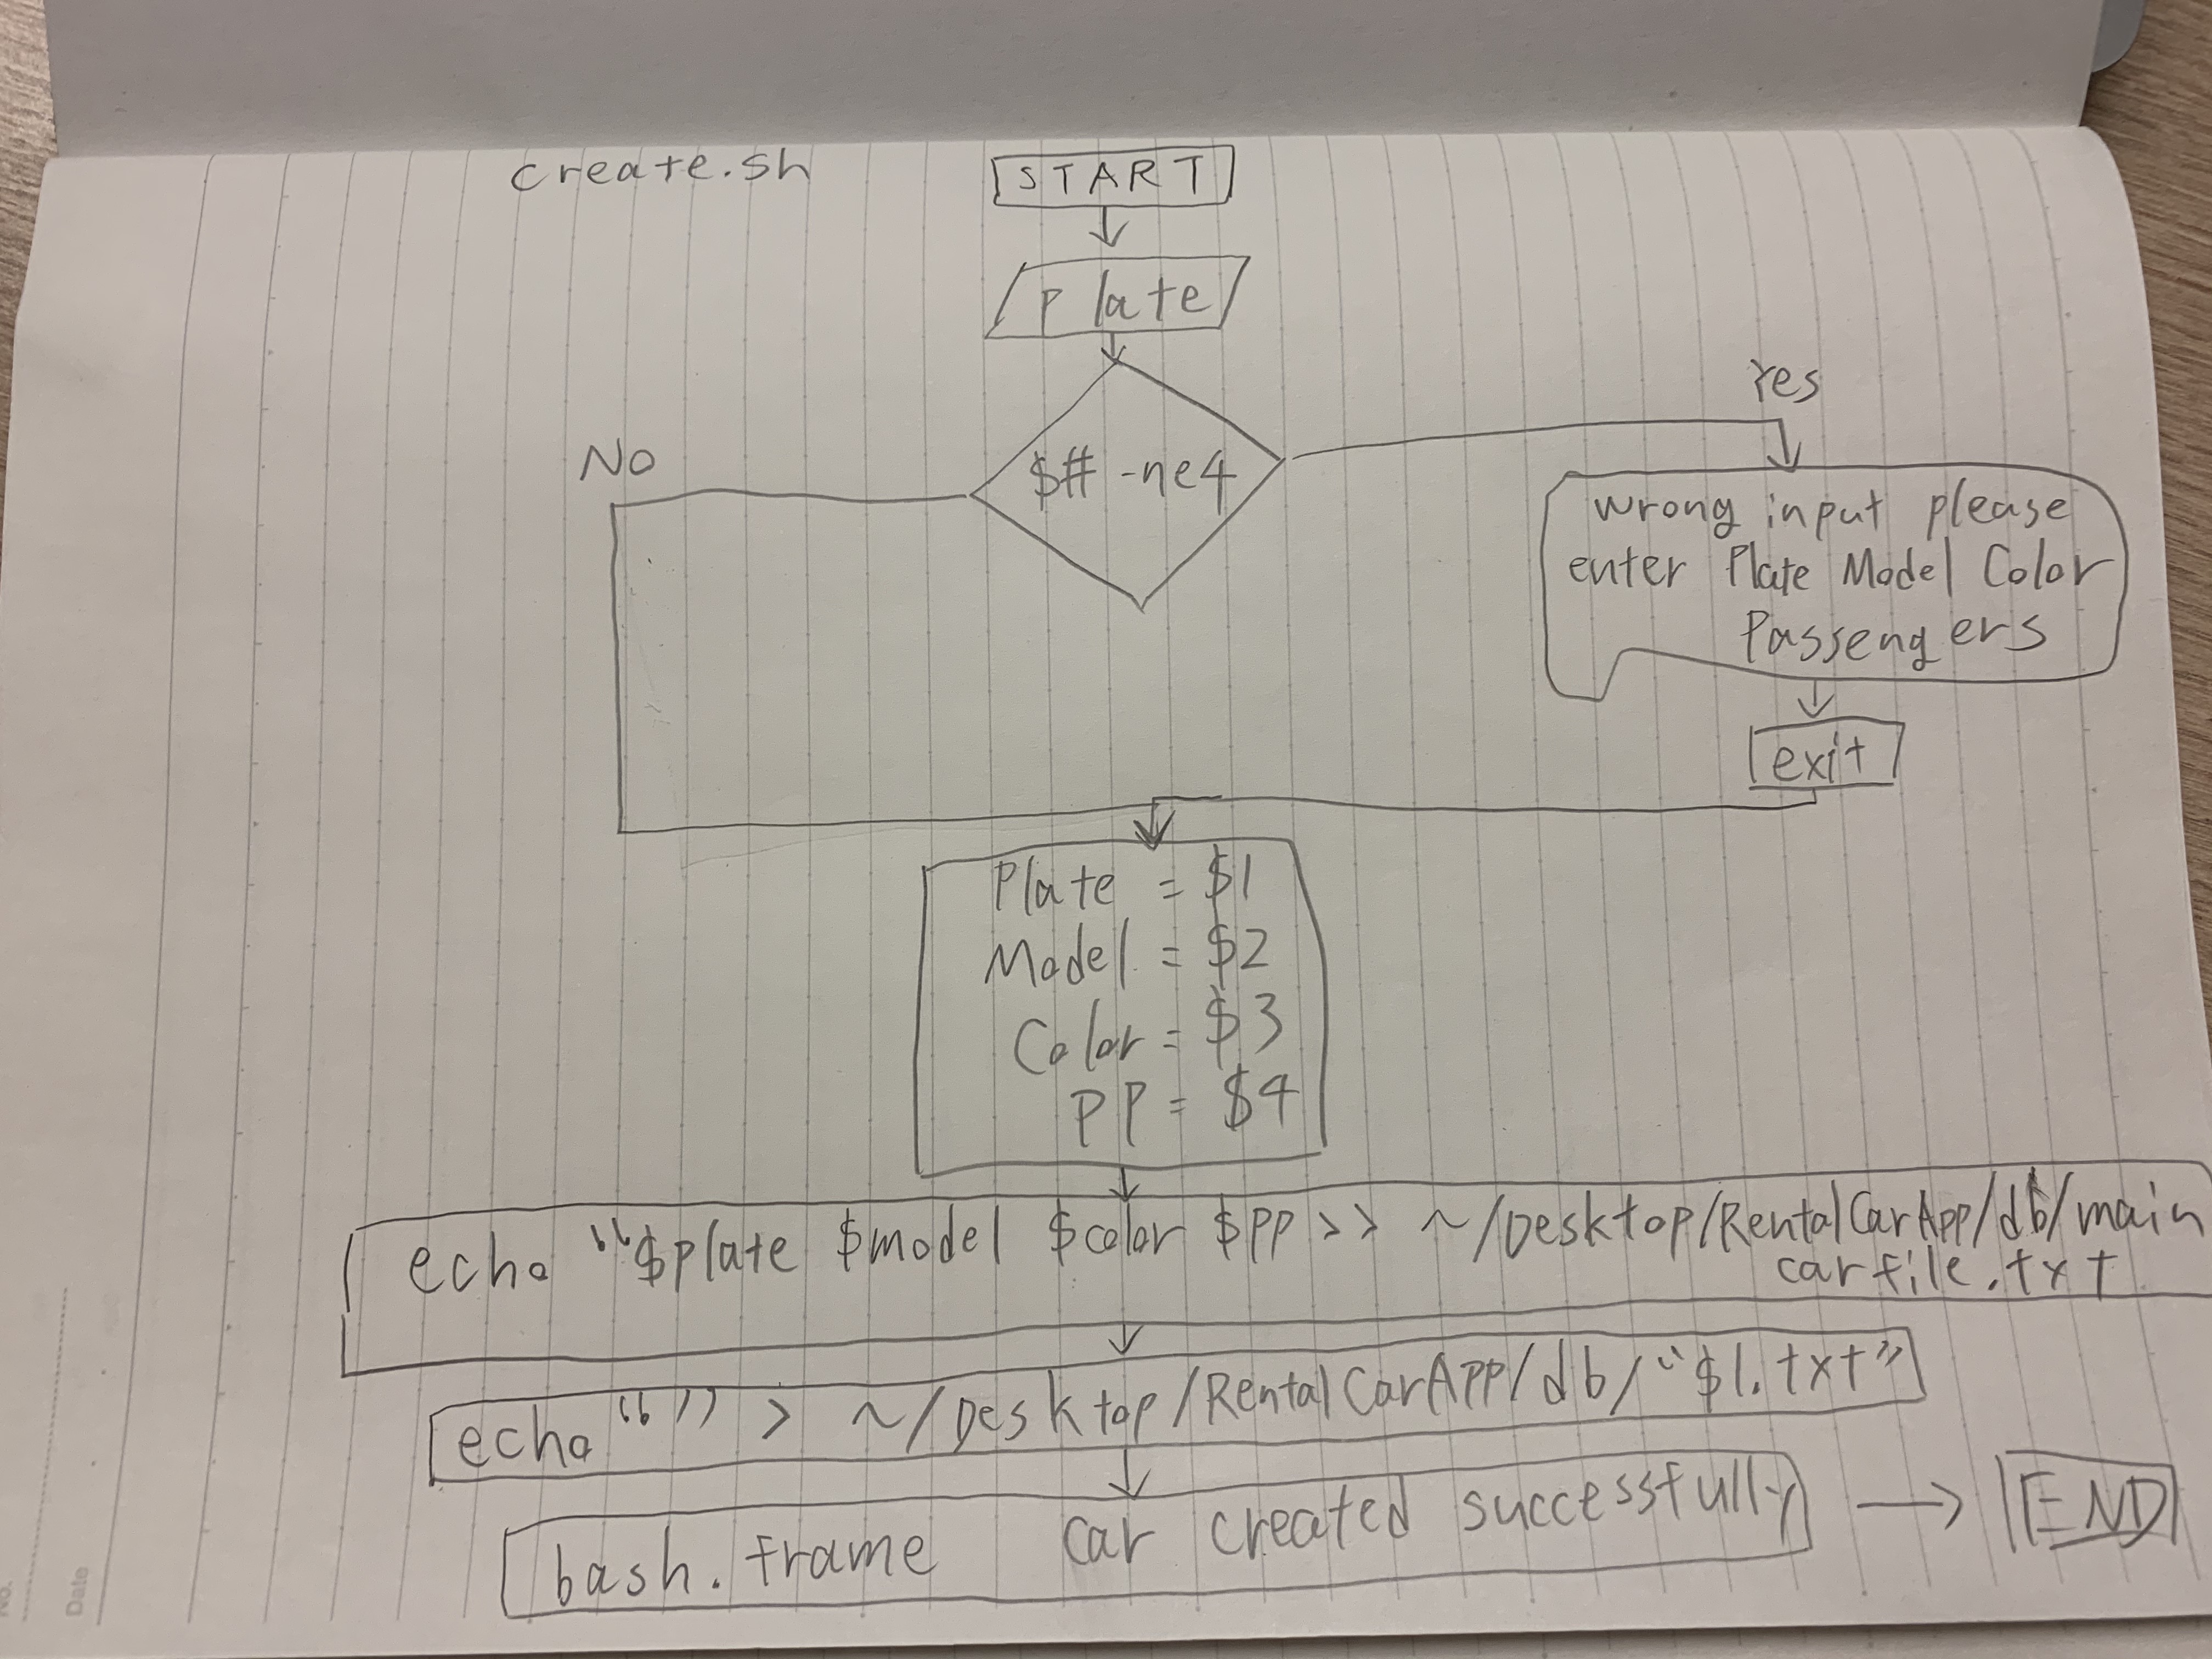 No.
Date
create.sh
START
Plate
$# -ne4
No
Yes
wrong input please
enter Plate Model Color
Passengers
exit
Plate = $1
Model = $2
Color = $3
PP = $4
echo "$plate $model $color $PP >> ~/Desktop/RentalCarAPP/db/main
carfile.txt
echo "" > ~/Desktop/RentalCarAPP/db/"$1.txt"
bash.frame car created successfully
END